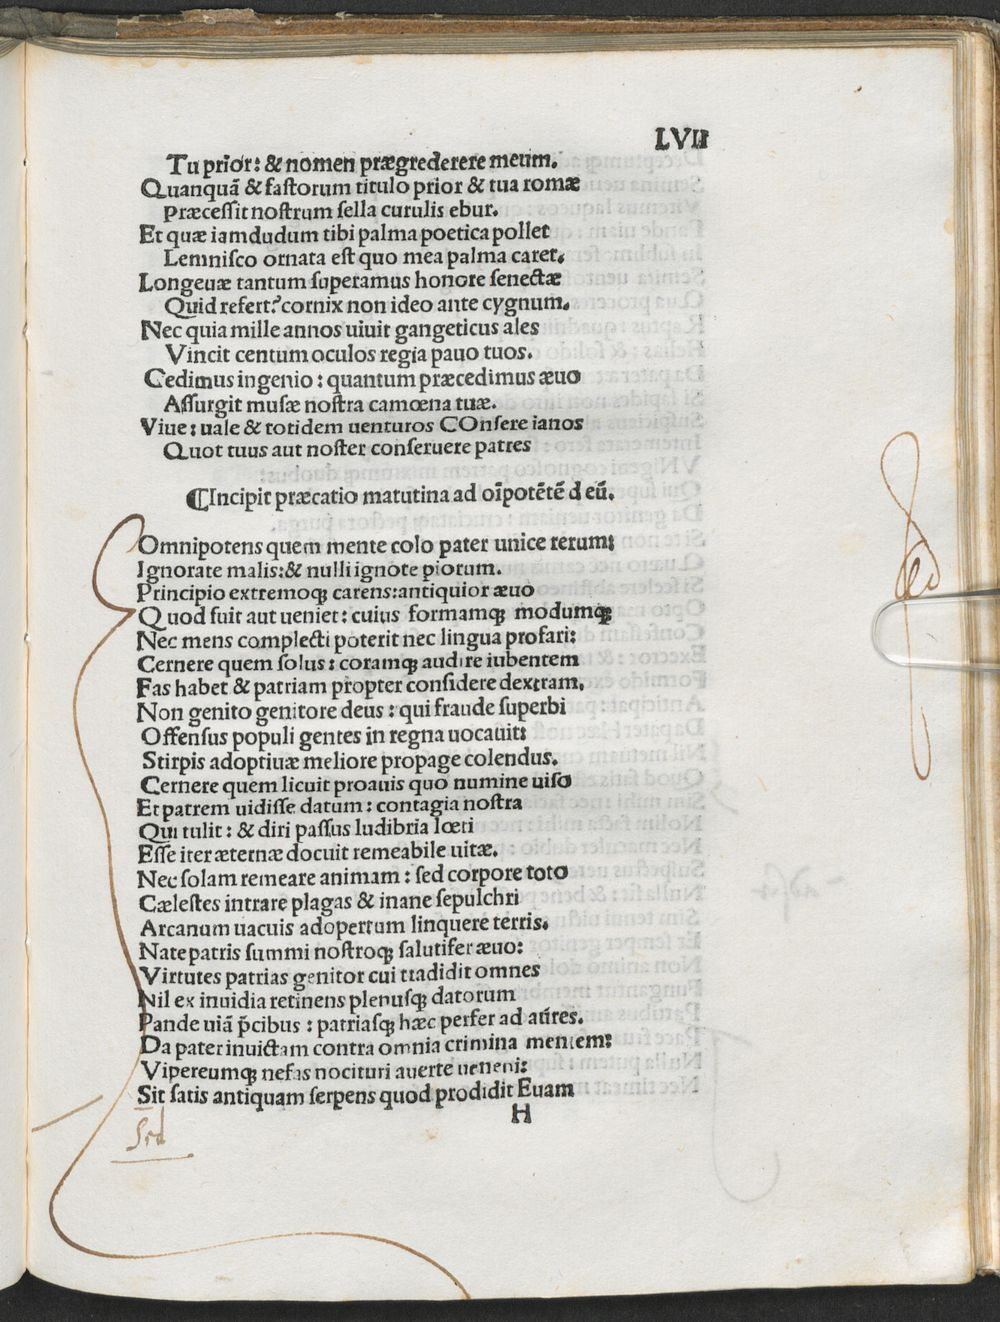 LVII
Tu prior: & nomen prægrederere meum.
Quanquã & fastorum titulo prior & tua romæ
Præcessit nostrum sella curulis ebur.
Et quæ iamdudum tibi palma poetica pollet
Lemnisco ornata est quo mea palma caret.
Longeuæ tantum superamus honore senectæ
Quid refert? cornix non ideo ante cygnum.
Nec quia mille annos uiuit gangeticus ales
Vincit centum oculos regia pauo tuos.
Cedimus ingenio: quantum præcedimus æuo
Assurgit musæ nostra camœna tuæ.
Viue: uale & totidem uenturos COnsere ianos
Quot tuus aut noster conseruere patres
¶Incipit præcatio matutina ad oĩpotẽtẽ d eũ.
Omnipotens quem mente colo pater unice rerum:
Ignorate malis:& nulli ignote piorum.
Principio extremoq; carens:antiquior æuo
Quod fuit aut ueniet: cuius formamq; modumq;
Nec mens complecti poterit nec lingua profari:
Cernere quem solus: coramq; audire iubentem
Fas habet & patriam propter considere dextram.
Non genito genitore deus: qui fraude superbi
Offensus populi gentes in regna uocauit:
Stirpis adoptiuæ meliore propage colendus.
Cernere quem licuit proauis quo numine uiso
Et patrem uidisse datum: contagia nostra
Qui tulit: & diri passus ludibria lœti
Esse iter æternæ docuit remeabile uitæ.
Nec solam remeare animam: sed corpore toto
Cælestes intrare plagas & inane sepulchri
Arcanum uacuis adopertum linquere terris.
Nate patris summi nostroq; salutifer æuo:
Virtutes patrias genitor cui tradidit omnes
Nil ex inuidia retinens plenusq; datorum
Pande uiã p̃cibus: patriasq; hæc perfer ad aures.
Da pater inuictam contra omnia crimina mentem:
Vipereumq; nefas nocituri auerte ueneni:
Sit satis antiquam serpens quod prodidit Euam
H